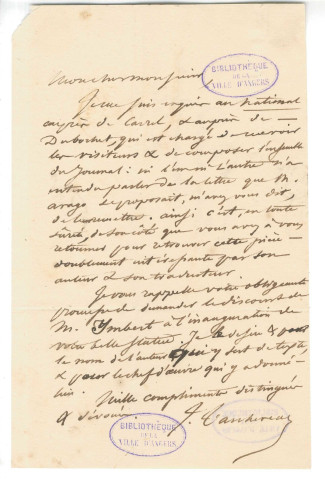 Mon cher monsieur,
BIBLIOTHÈQUE
DE LA
VILLE D'ANGERS
Je me suis enquis au National
auprès de Carrel & auprès de
Dubochet, qui est chargé de recevoir
les visiteurs & de composer l'ensemble
du Journal: ni l'un ni l'autre n'a
entendu parler de la lettre que M.
arago se proposait, m'avez vous dit,
de leur remettre. ainsi c'est, en toute
sûreté, de son côté que vous avez à vous
retourner pour retrouver cette pièce
doublement intéressante par son
auteur & son traducteur.
Je vous rappelle votre obligeante
promesse de demander le discours de
M. Ymbert à l'inauguration de
votre belle statue. Je le désire & pour
le nom de l'auteur qui y sert de texte
& pour le chef d'œuvre qui y a donné
lieu.
Mille compliments distingués
& dévoués.
BIBLIOTHÈQUE
DE LA
VILLE D'ANGERS